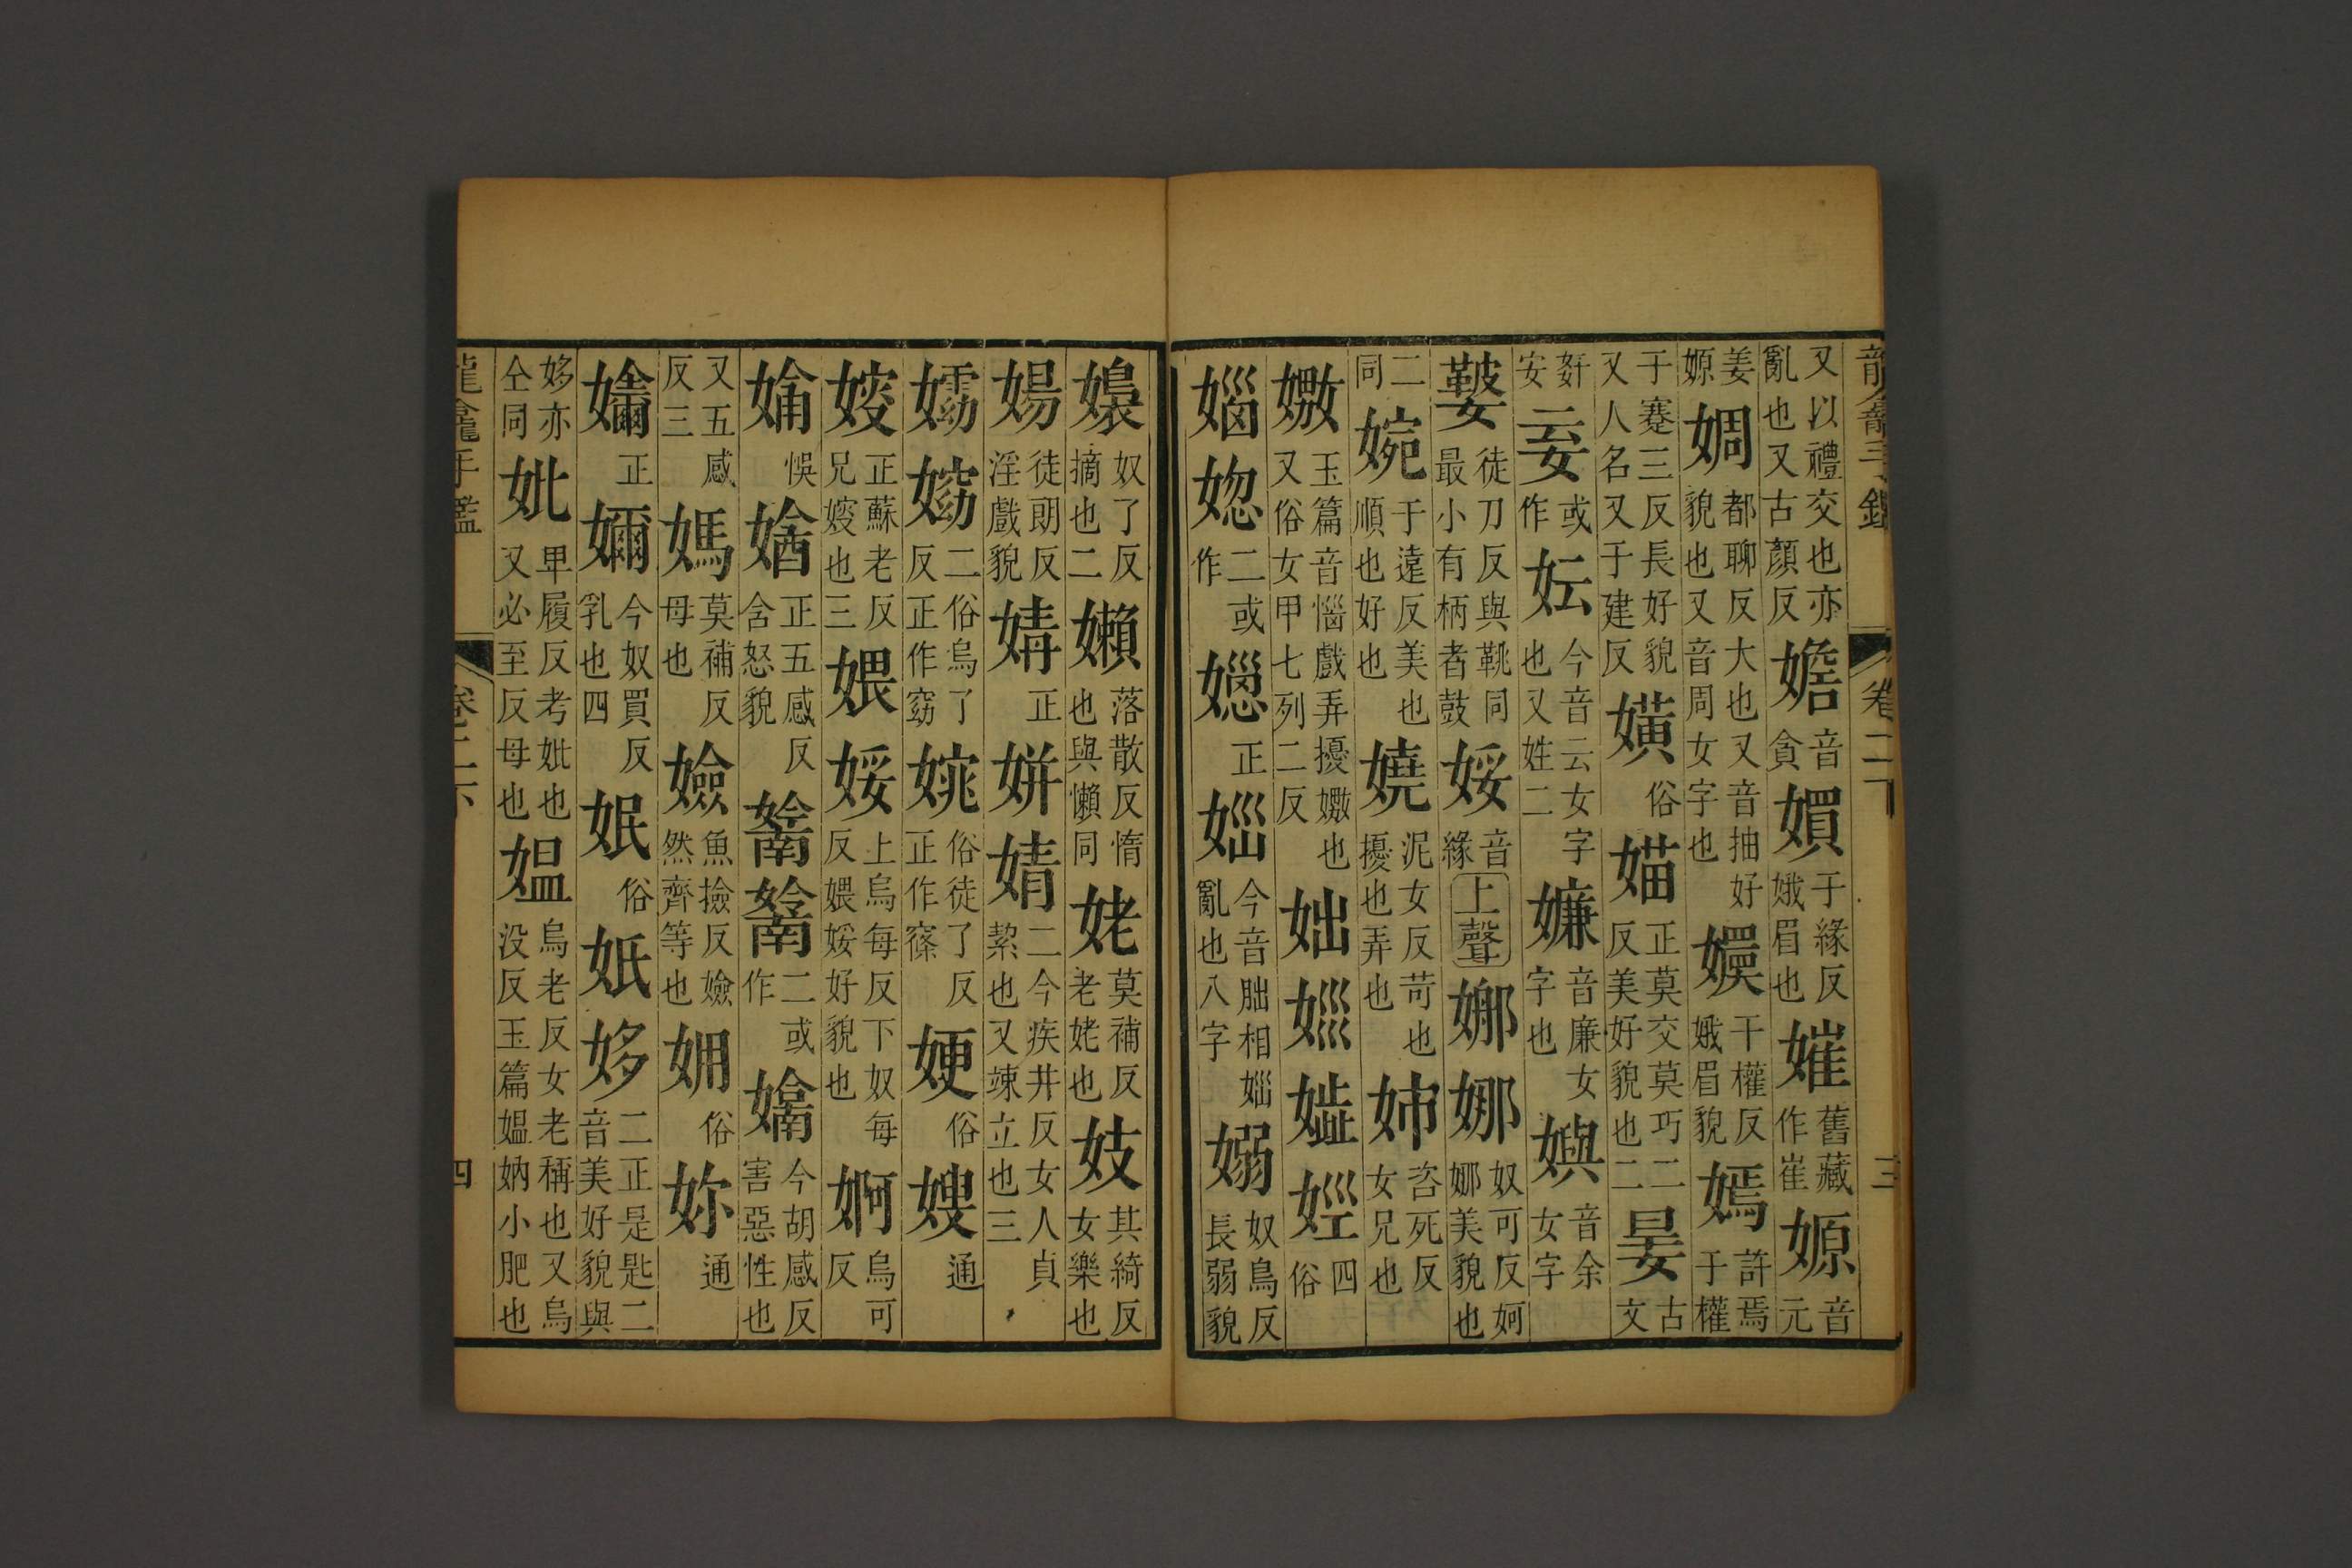 龍龕手鑑 卷二下 三
又以禮交也亦亂也又古顏反 嬋音貪 㜏于緣反娥眉也 嗺舊藏作崔 嫄音元
姜嫄 婤都聊反大也又音抽好貌也又音周女字也 嬽于權反娥眉貌 嫣許焉于權
于蹇三反長好貌又人名又于建反 嫹俗 媌正莫交莫巧二反美好貌也二 㚴古文
姧安 妟或作 妘今音云女字也又姓二 嫌音廉女字也 㜰音余女字
鼗徒刀反與鞉同最小有柄者鼓 婑音緣 上聲 娜 娜奴可反婀娜美貌也
二同 婉于遠反美也順也好也 嬈泥女反苛也擾也弄也 姉咨死反女兄也
嫐玉篇音惱戲弄擾嫐也又俗女甲七列二反 四俗
二或作 正 今音朏相亂也八字 嫋奴鳥反長弱貌
嬝奴了反摘也二 嬾落散反惰也與懶同 姥莫補反老姥也 妓其綺反女樂也
婸徒朗反淫戲貌 正 妌 婧二今疾井反女人貞絜也又竦立也三
二俗烏了反正作窈 姚俗徒了反正作窱 㛐俗 嫂通
㛮正蘇老反兄嫂也三 㛱 娞上烏每反下奴每反㛱娞好貌也 婀烏可反
悮 正五感反含怒貌 二或作 今胡感反害惡性也
又五感反三 媽莫補反母也 嬐魚撿反嬐然齊等也 俗 妳通
正 嬭今奴買反乳也四 姄俗 妋 姼二正是匙二音美好貌與
姼亦仝同 妣卑履反考妣也又必至反母也 媼烏老反女老稱也又烏没反玉篇媼妠小肥也
龍龕手鑑 卷二下 四